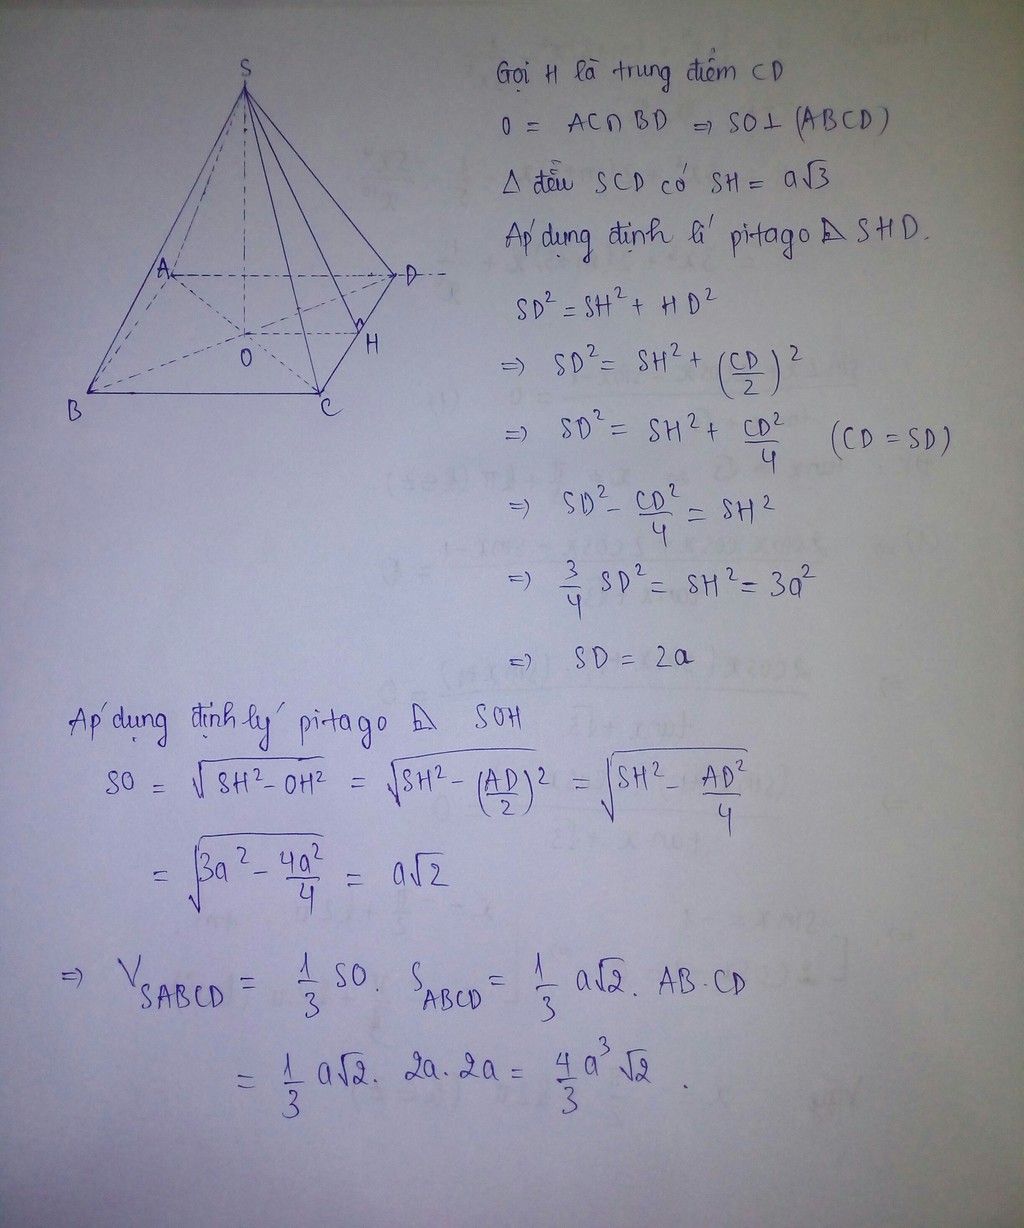 S
A
D
O
H
B
C
Gọi H là trung điểm CD
O = AC∩BD ⇒ SO⊥(ABCD)
Δ đều SCD có SH = a√3
Áp dụng định lí pitago ⊿ SHD.
SD² = SH² + HD²
⇒ SD² = SH² + (CD/2)²
⇒ SD² = SH² + CD²/4 (CD = SD)
⇒ SD² - CD²/4 = SH²
⇒ 3/4 SD² = SH² = 3a²
⇒ SD = 2a
Áp dụng định lý pitago ⊿ SOH
SO = √(SH² - OH²) = √(SH² - (AD/2)²) = √(SH² - AD²/4)
= √(3a² - 4a²/4) = a√2
⇒ V_SABCD = 1/3 SO. S_ABCD = 1/3 a√2. AB.CD
= 1/3 a√2. 2a.2a = 4/3 a³√2.